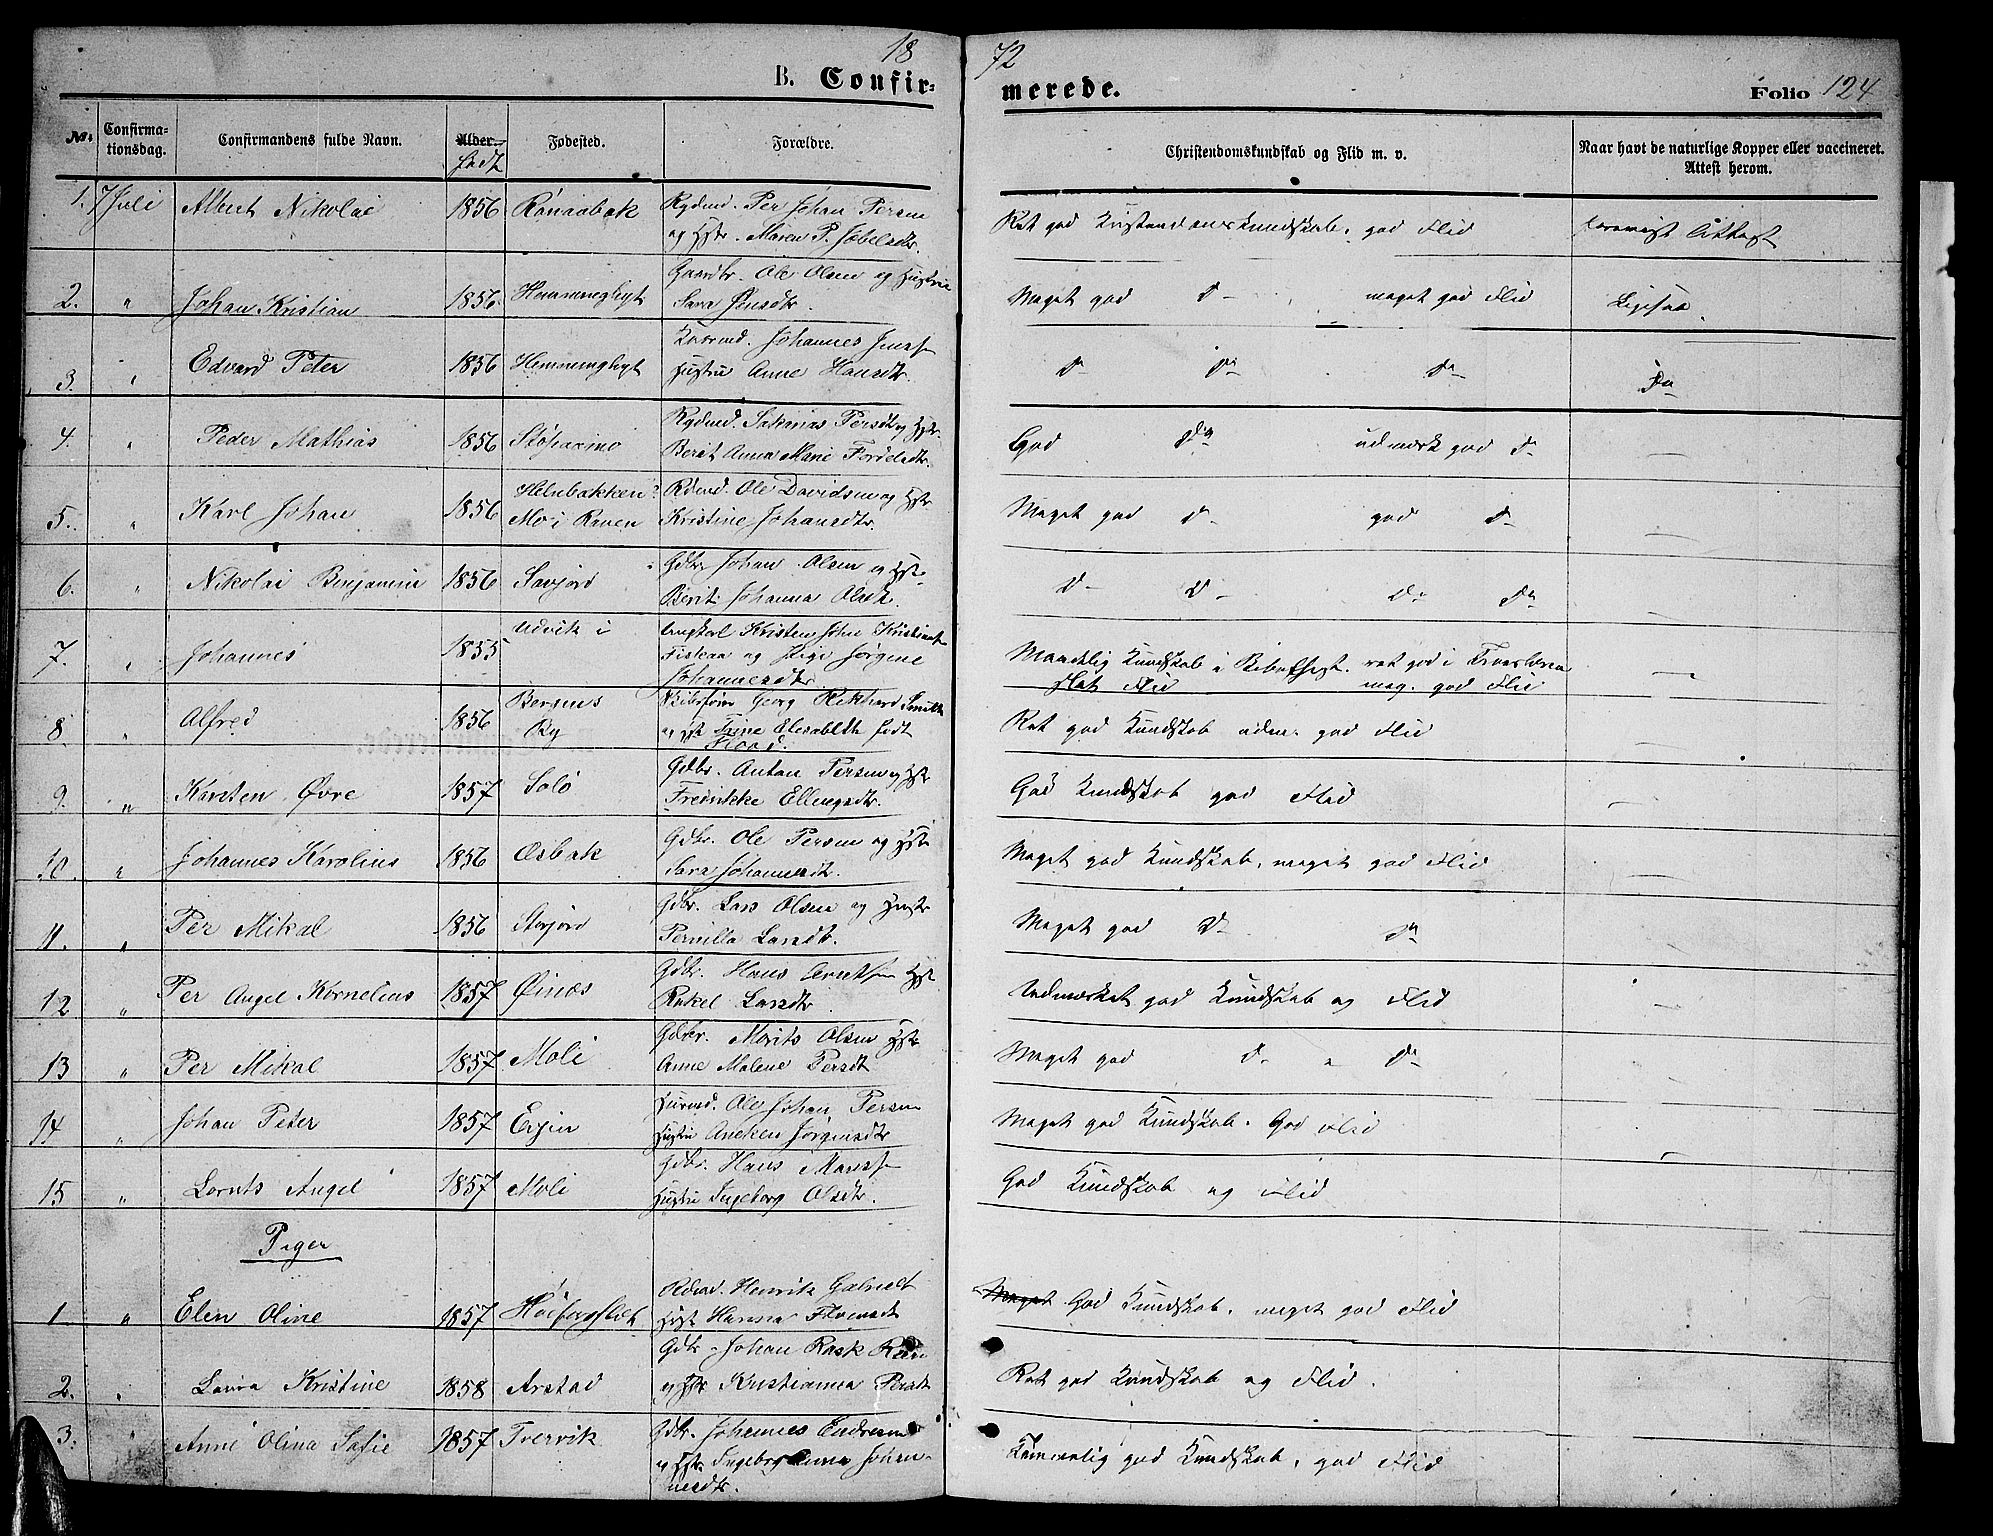 18 72
B. Confir- merede.
Folio 124
№. Confirma- tionsdag. Confirmandens fulde Navn. Alder. født Fødested. Forældre. Christendomskundskab og Flid m. v. Naar havt de naturlige Kopper eller vaccineret. Attest herom.
1. 7 Juli Albert Nikolai 1856 Rydmd. Per Johan Persen
og Hstr. Maren P.
Ret god Kristendomskundskab. god Flid Attest
2. " Johan Kristian 1856 Hemminghyt Gaardbr. Ole Olsen og Hustrue
Sara Jensdtr.
Meget god D- meget god Flid Ligesaa
3. " Edvard Peter 1856 Hemminghyt Johannes Jenss
Hustru Anne Hansdtr.
D- Do D- Do
4. " Peder Mathias 1856 Rydmd. Persdtr og Hstr.
Berit Anna Marie
God Do udmærk god D-
5. " Karl Johan 1856 Mo i Ranen Rdmd. Ole Davidsen og Hstr
Kristine Johansdtr.
Meget god D- god D- —
6. " Nikolai Benjamin 1856 Gdbr Johan Olsen og Hstr
Berit Johanna Olsdtr.
D- D- D- Do —
7. " Johannes 1855 Udvik i Ungkarl Kristen John
Fiskaa og Pige Jørgine
Johannesdtr
Maadelig Kundskab i ret god i
slet Flid mag. god Flid —
8. " Alfred 1856 Bergens
By Georg Rikhard Smith
Trine Elesabeth født
Ret god Kundskab udm. god Flid —
9. " Karsten Øvre 1857 Solø Gdbr. Anton Persen og Hstr
Fredrikke Ellingsdtr.
God Kundskab god Flid —
10. " Johannes Karolius 1856 Osbak Gdbr. Ole Persen og Hstr
Sara Johannesdtr.
Meget god Kundskab, meget god Flid —
11. " Per Mikal 1856 Storjord Gdbr. Lars Olsen og Hustr
Pernilla Larsdtr.
Meget god D- Do —
12 " Per Angel Kornelius 1857 Øinæs Gdbr. Hans Hstr
Rakel Larsdtr.
Udmærket god Kundskab og Flid —
13 " Per Mikal 1857 Moli Gdbr. Morits Olsen Hstr
Anne Malene Persdtr
Meget god D- " Do
14 " Johan Peter 1857 Husmd. Ole Johan Persen
Hustru Aneken Jørgensdtr
Meget god Kundskab. God Flid
15 " Lornts Angel 1857 Moli Gdbr. Hans
Hustru Ingeborg Olsdtr.
God Kundskab og Flid
Piger
1 " Elen Oline 1857 Rdmd. Henrik
Hstr Hanna
Meget God Kundskab. meget god Flid
2. " Laura Kristine 1858 Arstad Gdbr Johan Rask
og Hstr Kristianna Persdtr
Ret god Kundskab og Flid.
3. " Anne Olina Sofie 1857 Tvervik Gdbr. Johannes
og Hstr Ingeborg Anna Johan-
nesdtr.
Temmelig god Kundskab, god Flid